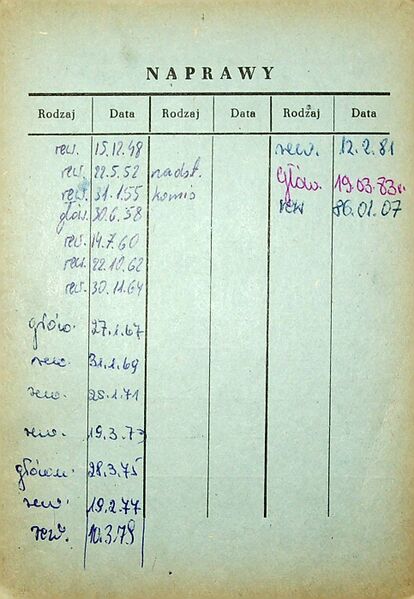 NAPRAWY
Rodzaj Data Rodzaj Data Rodzaj Data
rew. 15.12.48 rew. 12.2.81
rew. 22.5.52 nadst. główn. 19.03.83r.
rew. 31.1.55 komis rew 86.01.07
głów. 30.6.58
rew. 14.7.60
rew. 22.10.62
rew. 30.11.64
główn. 27.1.67
rew. 31.1.69
rew. 25.1.71
rew. 19.3.73
główn. 28.3.75
rew. 19.2.77
rew. 10.3.79